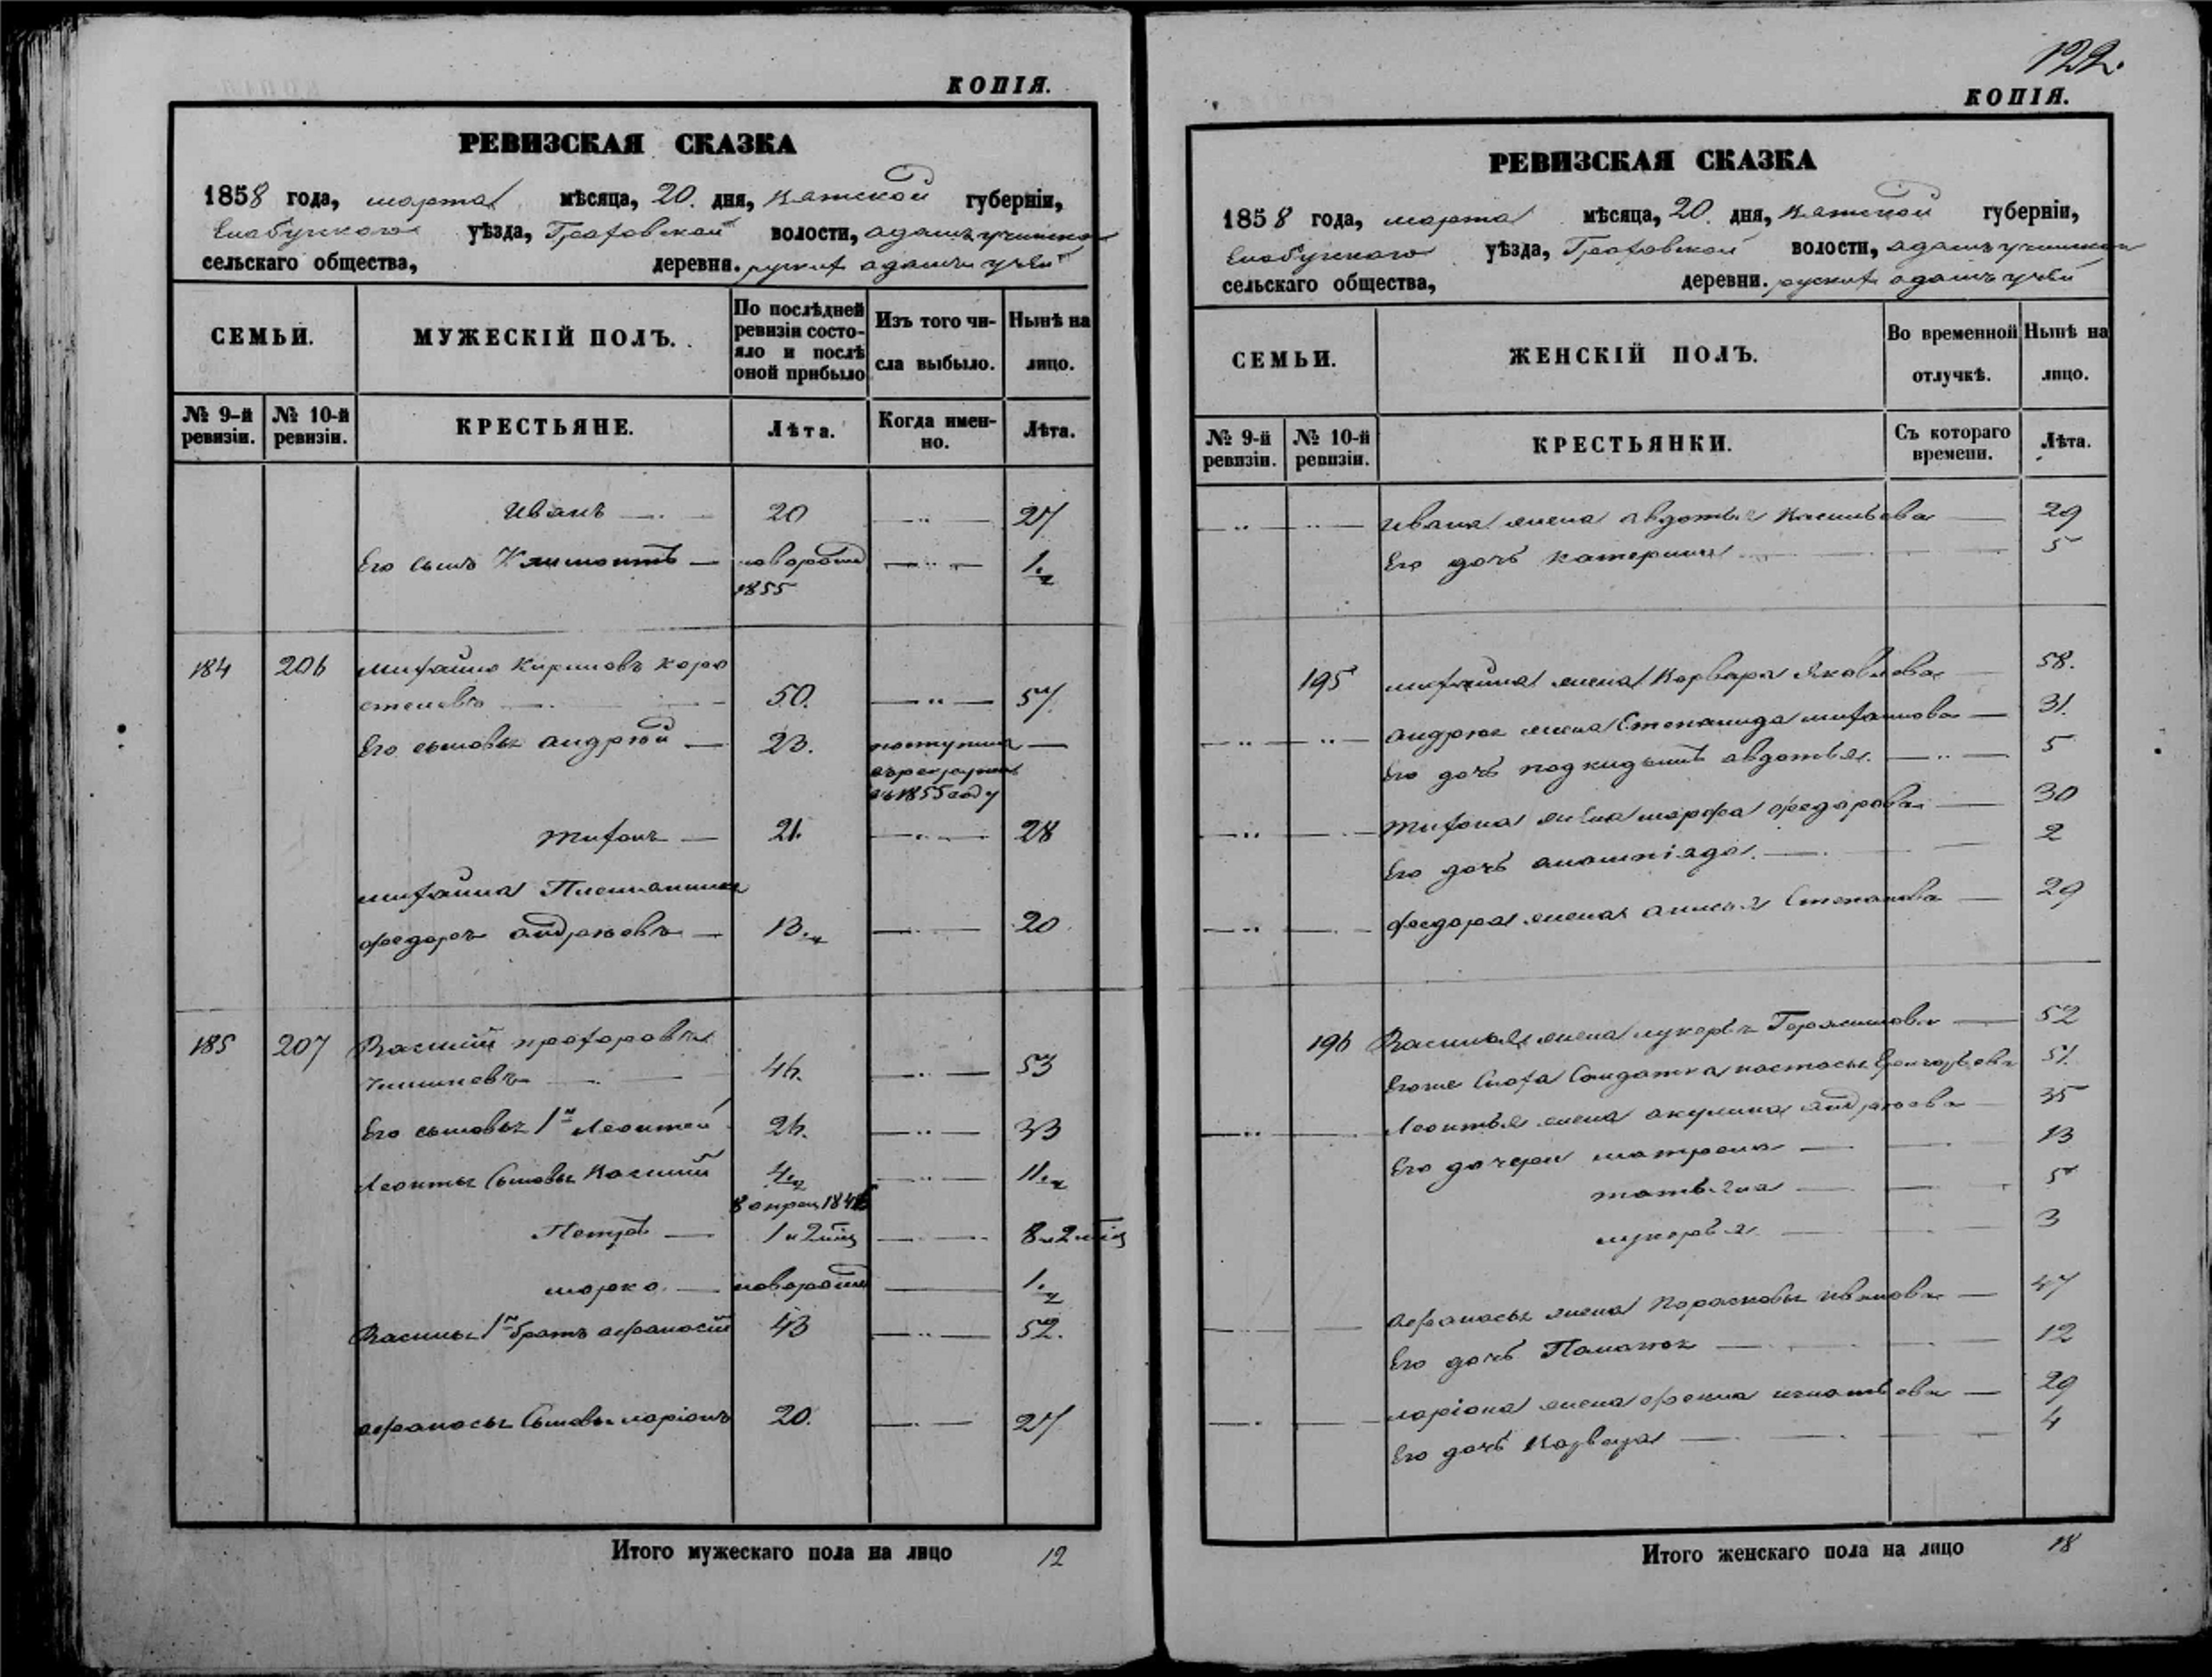 КОПІЯ.
РЕВИЗСКАЯ СКАЗКА
1858 года, марта мѣсяца, 20. дня, Вятской губерніи,
Елабугскаго уѣзда, Граховской волости,
сельскаго общества, деревни.
СЕМЬИ.
МУЖЕСКІЙ ПОЛЪ.
По послѣдней ревизіи состо-
яло и послѣ оной прибыло
Изъ того чи-
сла выбыло.
Нынѣ на
лицо.
№ 9-й ревизіи.
№ 10-й ревизіи.
КРЕСТЬЯНЕ.
Лѣта.
Когда имен-
но.
Лѣта.
Иванъ 20 27
Его сынъ новорожд 1.
1855
184 206 Михайло Кириловъ Коро
стелевъ 50. 57.
Его сыновья Андрей 23. поступил
въ рекруты
въ 1855 году
Тихонъ 21. 28
Михайла Племянникъ
Федоръ Андреевъ 13. 20
185 207 Василий Прохоровъ
46. 53
Его сыновья 1й Леонтей 26. 33
Леонтья Сыновья Василий 4 11
Петръ 1 и 2 8 и 2
Марко новорожд 1.
Василья 1й братъ Афанасий 43 52.
Афанасья Сыновья Ларіонъ 20. 27
Итого мужескаго пола на лицо 12
122.
КОПІЯ.
РЕВИЗСКАЯ СКАЗКА
1858 года, марта мѣсяца, 20. дня, Вятской губерніи,
Елабугскаго уѣзда, Граховской волости,
сельскаго общества, деревни.
СЕМЬИ.
ЖЕНСКІЙ ПОЛЪ.
Во временной
отлучкѣ.
Нынѣ на
лицо.
№ 9-й ревизіи.
№ 10-й ревизіи.
КРЕСТЬЯНКИ.
Съ котораго
времени.
Лѣта.
Ивана жена Авдотья Васильева 29
Его дочь Катерина 5
195 Михайла жена Варвара Яковлева 58.
Андрея жена Степанида Михайлова 31.
Его дочь подкидышъ Авдотья. 5
Тихона жена Марфа Федорова 30
Его дочь 2
Федора жена Анисья Степанова 29
196 Василья жена Лукерья Герасимова 52
Егоже Сноха Солдатка Настасья 51.
Леонтья жена Акулина Андреева 35
Его дочери Матрена 13
Татьяна 5
Лукерья 3
Афанасья жена Парасковья Иванова 47
Его дочь 12
Ларіона жена Фекла Игнатьева 29
Его дочь Варвара 4
Итого женскаго пола на лицо 18